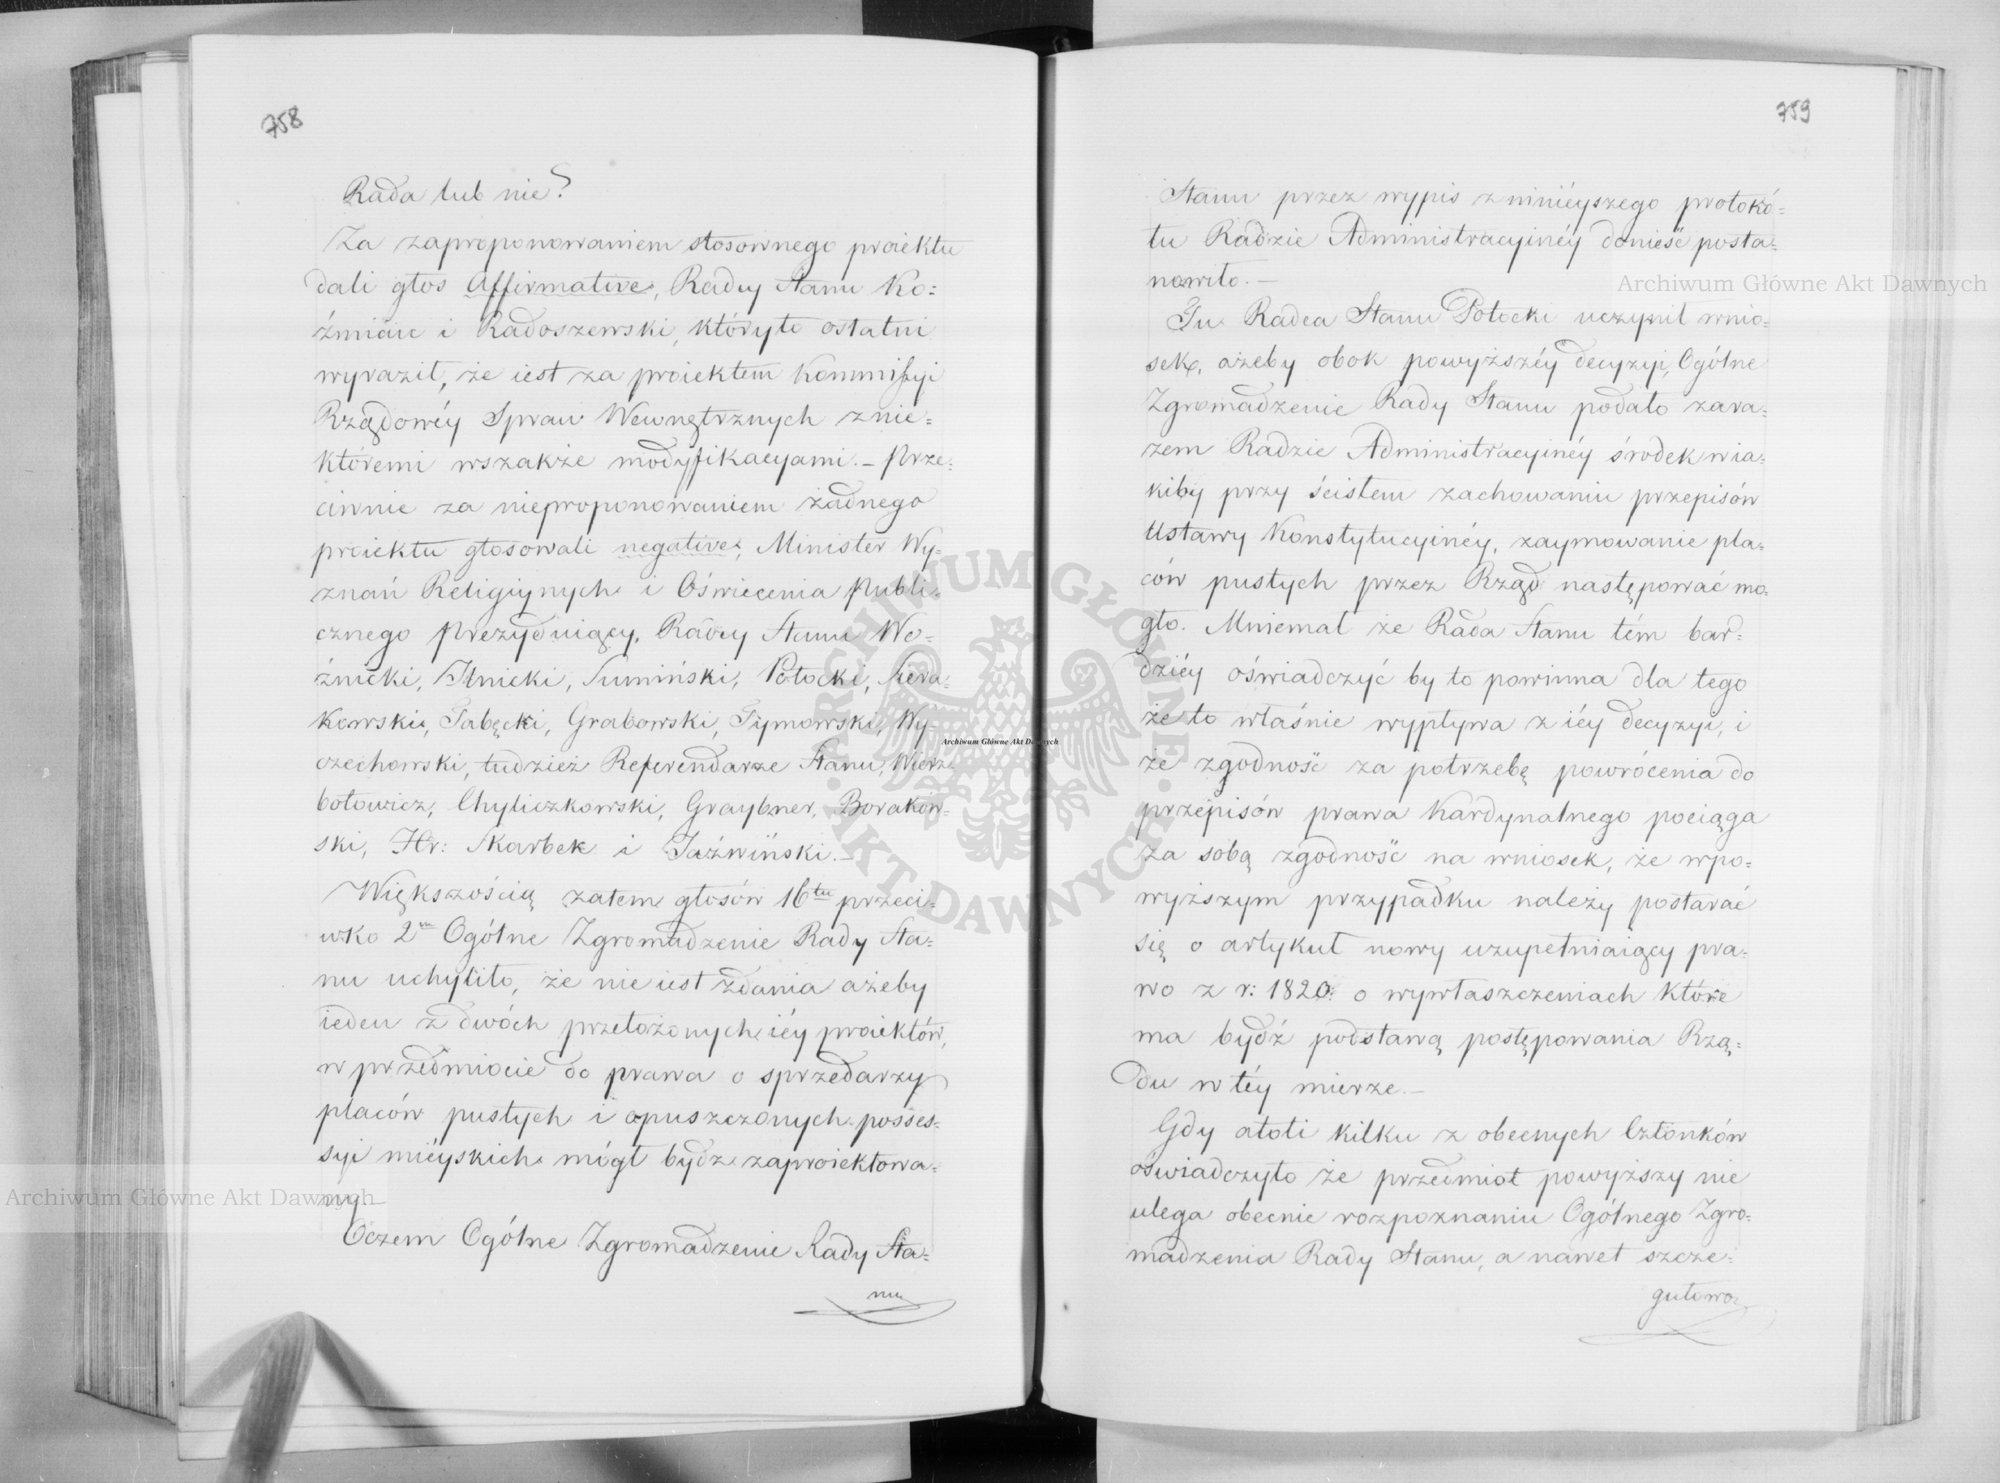 758
Rada lub nie?
Za zaproponowaniem stosownego proiektu
dali głos Affirmative, Radcy Stanu Ko=
źmian i Radoszewski, któryto ostatni
wyraził, że iest za proiektem Kommissyi
Rządowéy Spraw Wewnętrznych z nie=
któremi wszakże modyfikacyami. – Prze=
ciwnie za nieproponowaniem żadnego
proiektu głosowali negative, Minister Wy=
znań Religiynych i Oświecenia Publi=
cznego Prezyduiący, Radcy Stanu Wo=
źnicki, Ilnicki, Sumiński, Potocki, Siera=
kowski, Tabęcki, Grabowski, Tymowski, Wy=
czechowski, tudzież Referendarze Stanu, Wierz=
bołowicz, Chyliczkowski, Graybner, Borakow=
ski, Hr: Skarbek i Jaźwiński. –
Większością zatem głosów 16tu przeci=
wko 2m Ogólne Zgromadzenie Rady Sta=
nu uchyliło, że nie iest zdania ażeby
ieden z dwóch przełożonych iéy proiektów,
w przedmiocie do prawa o sprzedarzy
placów pustych i opuszczonych posses=
syi mieyskich mógł bydź zaproiektowa=
ny –
Oczem Ogólne Zgromadzenie Rady Sta=
nu
759
Stanu przez wypis z ninieyszego protokó=
łu Radzie Administracyinéy donieść posta=
nowiło. –
Tu Radca Stanu Potocki uczynił wnio=
sek, ażeby obok powyższéy decyzyi, Ogólne
Zgromadzenie Rady Stanu podało zara=
zem Radzie Administracyinéy środek w ia=
kiby przy ścisłem zachowaniu przepisów
Ustawy Konstytucyinéy, zaymowanie pla=
ców pustych przez Rząd następować mo=
gło. Mniemał że Rada Stanu tém bar=
dziéy oświadczyć by to powinna dla tego
że to właśnie wypływa z iéy decyzyi, i
że zgodność za potrzebę powrócenia do
przepisów prawa Kardynalnego pociąga
za sobą zgodność na wniosek, że w po=
wyższym przypadku należy postarać
się o artykuł nowy uzupełniaiący pra=
wo z r: 1820: o wywłaszczeniach które
ma bydź podstawą postępowania Rzą=
du w téy mierze. –
Gdy atoli kilku z obecnych Członków
oswiadczyło że przedmiot powyższy nie
ulega obecnie rozpoznaniu Ogólnego Zgro=
madzenia Rady Stanu, a nawet szcze=
gułowo
Archiwum Główne Akt Dawnych
Archiwum Główne Akt Dawnych
Archiwum Główne Akt Dawnych
ARCHIWUM GŁÓWNE · AKT DAWNYCH ·